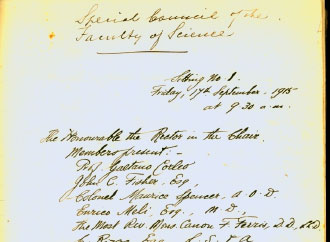 Special Council of the
Faculty of Science
Sitting No 1.
Friday, 17th September, 1915
at 9.30 a.m.
The Honourable the Rector in the Chair.
Members present:-
Prof. Gaetano
John C. Fisher, Esq,
Colonel Maurice Spencer, A.O.D.
Enrico Meli, Esq., M.D.,
The Most Rev Mons. Canon F. Ferris, D.D.,
Esq.